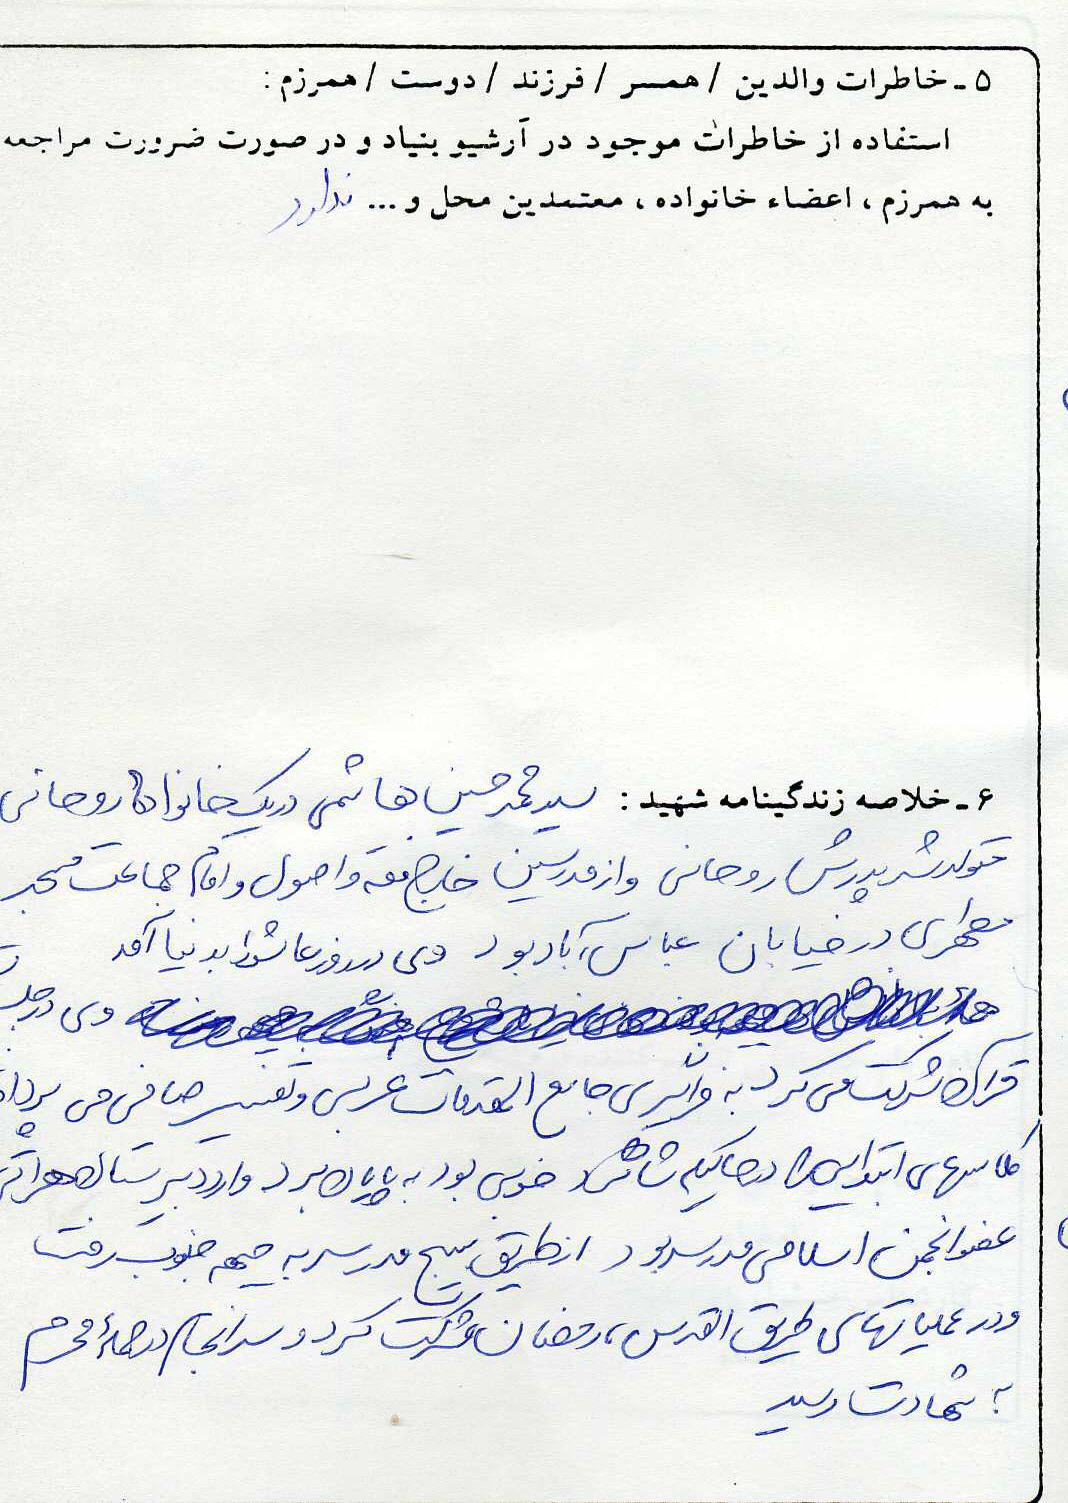 ۵ ـ خاطرات والدین / همسر / فرزند / دوست / همرزم :
استفاده از خاطرات موجود در آرشیو بنیاد و در صورت ضرورت مراجعه
به همرزم ، اعضاء خانواده ، معتمدین محل و ... ندارد
۶ ـ خلاصه زندگینامه شهید : سید محمد حسین هاشمی در یک خانواده روحانی
متولد شد پدرش روحانی و از مدرسین خارج فقه و اصول و امام جماعت مسجد
مطهری در خیابان عباس آباد بود وی در روز عاشورا بدنیا آمد
وی در جلسـ
قرآن شرکت می کرد به فراگیری جامع المقدمات عربی و تفسیر صافی می پرداخـ
کلاسهای ابتدایی را در حالیکه شاگرد خوبی بود به پایان برد وارد دبیرستان
عضو انجمن اسلامی مدرسه بود از طریق بسیج مدرسه به جبهه جنوب رفت
و در عملیاتهای طریق القدس ، رمضان شرکت کرد و سرانجام در محرم
به شهادت رسید